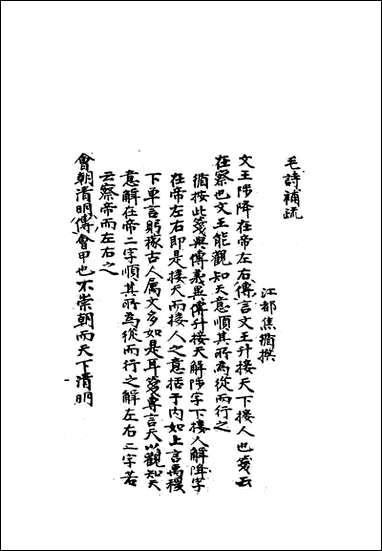 毛詩補疏
江都焦循撰
文王陟降在帝左右傳言文王升接天下接人也箋云
在察也文王能觀知天意順其所為從而行之
循按此箋與傳義異傳升接天解陟字下接人解降字
在帝左右即是接天而接人之意括于内如上言禹稷
下單言躬稼古人属文多如是耳箋專言天以觀知天
意解在帝二字順其所為從而行之解左右二字若
云察帝而左右之
會朝清明傳會甲也不崇朝而天下清明